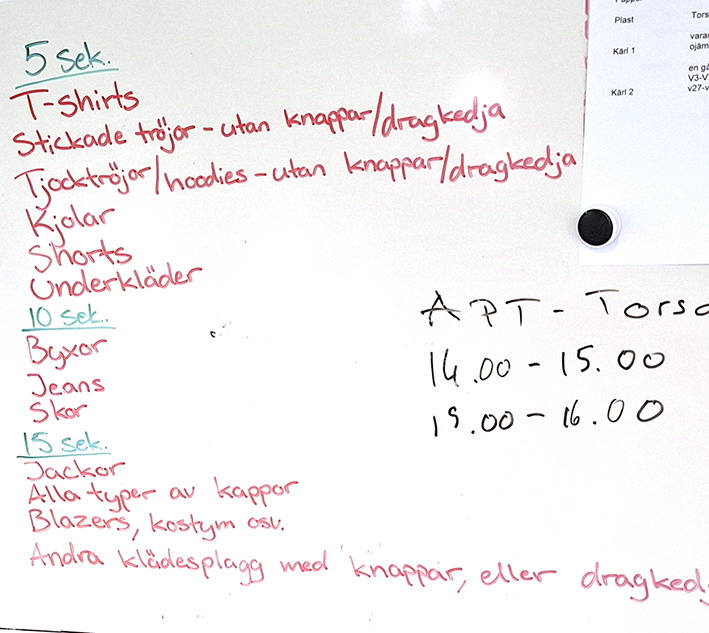 5 sek.
T-shirts
Stickade tröjor - utan knappar/dragkedja
Tjocktröjor/hoodies - utan knappar/dragkedja
Kjolar
Shorts
Underkläder
10 sek.
Byxor
Jeans
Skor
15 sek.
Jackor
Alla typer av kappor
Blazers, kostym osv.
Andra klädesplagg med knappar, eller dragkedj
APT - Torsd
14.00 - 15.00
15.00 - 16.00
Plast Tors
Kärl 1 varan
ojäm
en gå
Kärl 2 V3-V
v27-v